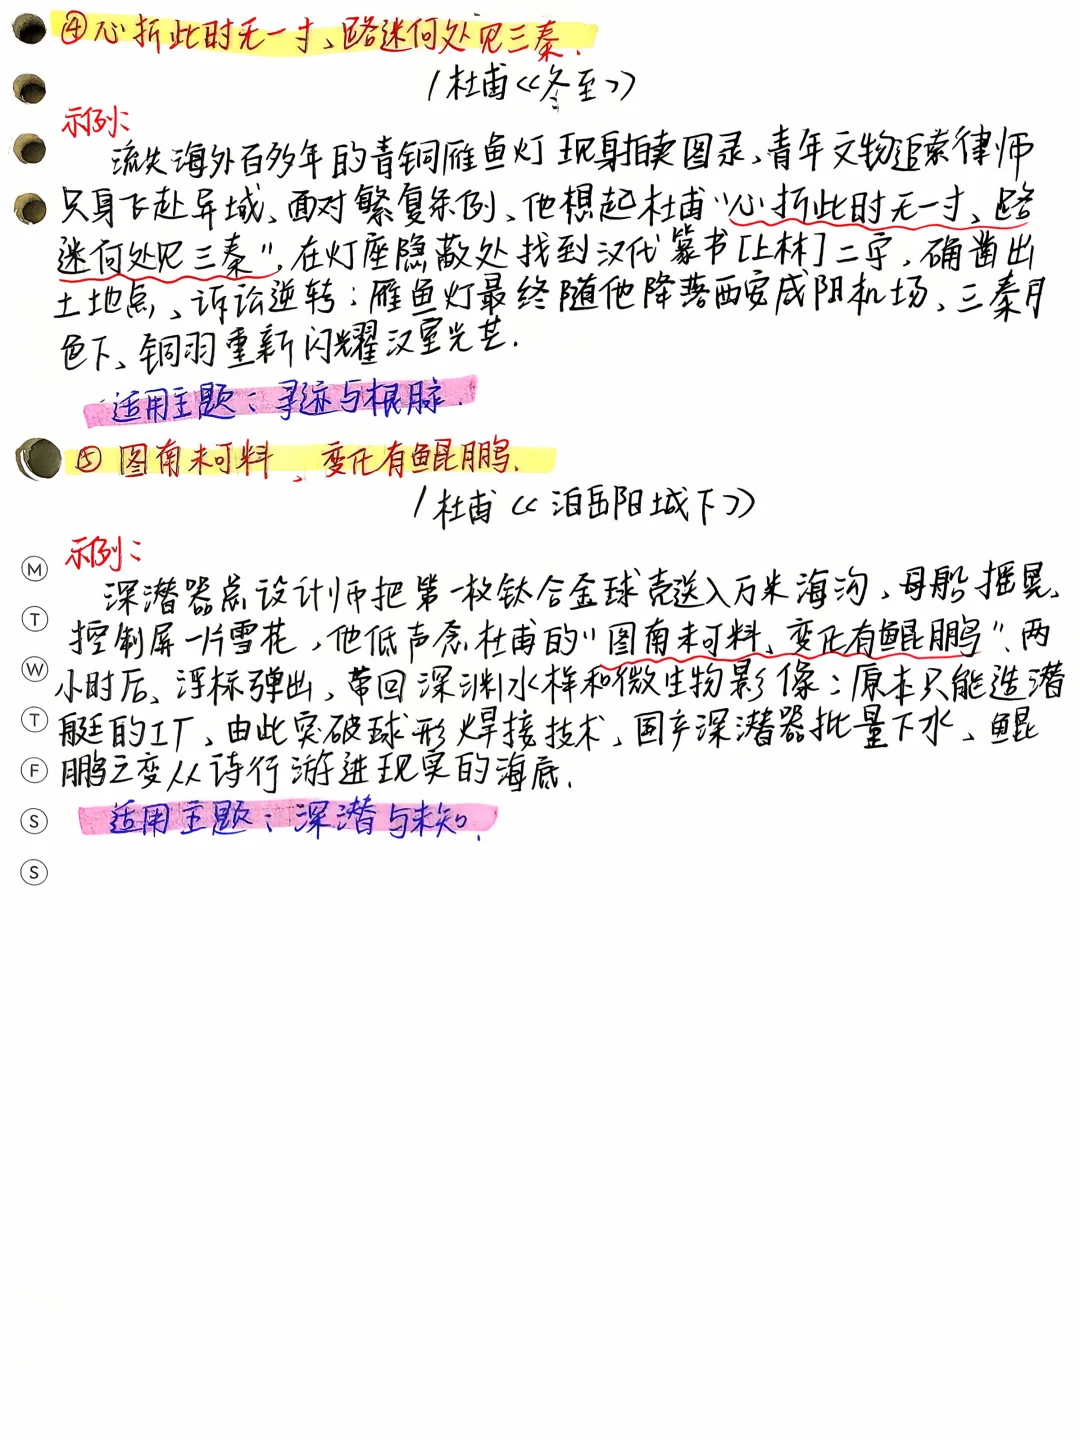 ④心折此时无一寸、路迷何处见三秦.
/杜甫《冬至》
示例:
流失海外百多年的青铜雁鱼灯现身拍卖图录、青年文物追索律师
只身飞赴异域、面对繁复条例、他想起杜甫“心折此时无一寸、路
迷何处见三秦”，在灯座隐蔽处找到汉代篆书[上林]二字，确凿出
土地点、诉讼逆转；雁鱼灯最终随他降落西安咸阳机场、三秦月
色下、铜羽重新闪耀汉室光芒.
适用主题：寻迹与根脉.
⑤图南未可料、变化有鲲鹏.
/杜甫《泊岳阳城下》
示例：
深潜器总设计师把第一枚钛合金球壳送入万米海沟，母船摇晃、
控制屏一片雪花，他低声念杜甫的“图南未可料、变化有鲲鹏”.两
小时后、浮标弹出，带回深渊水样和微生物影像；原本只能造潜
艇的工厂、由此突破球形焊接技术、国产深潜器批量下水、鲲
鹏之变从诗行游进现实的海底.
适用主题：深潜与未知.
M
T
W
T
F
S
S